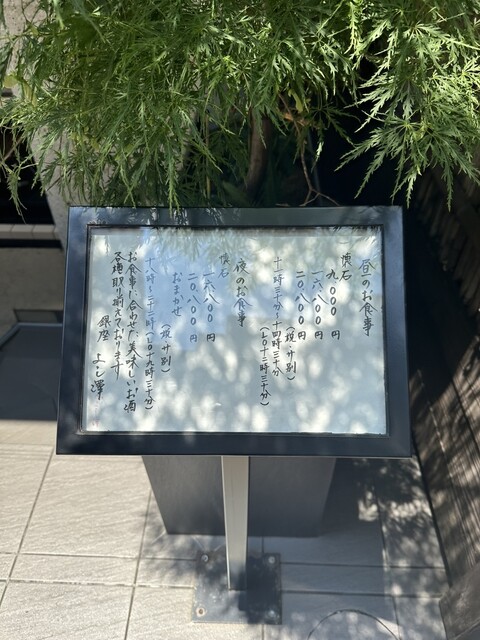 昼のお食事
懐石
九、〇〇〇円
一六、八〇〇円
二〇、八〇〇円
(税・サ別)
十一時三十分〜十四時三十分
(LO十二時三十分)
夜のお食事
懐石
一六、八〇〇円
二〇、八〇〇円
おまかせ
(税・サ別)
十八時〜二十二時(LO十九時三十分)
お食事に合わせた美味しいお酒
各種取り揃えております
銀座 よし澤